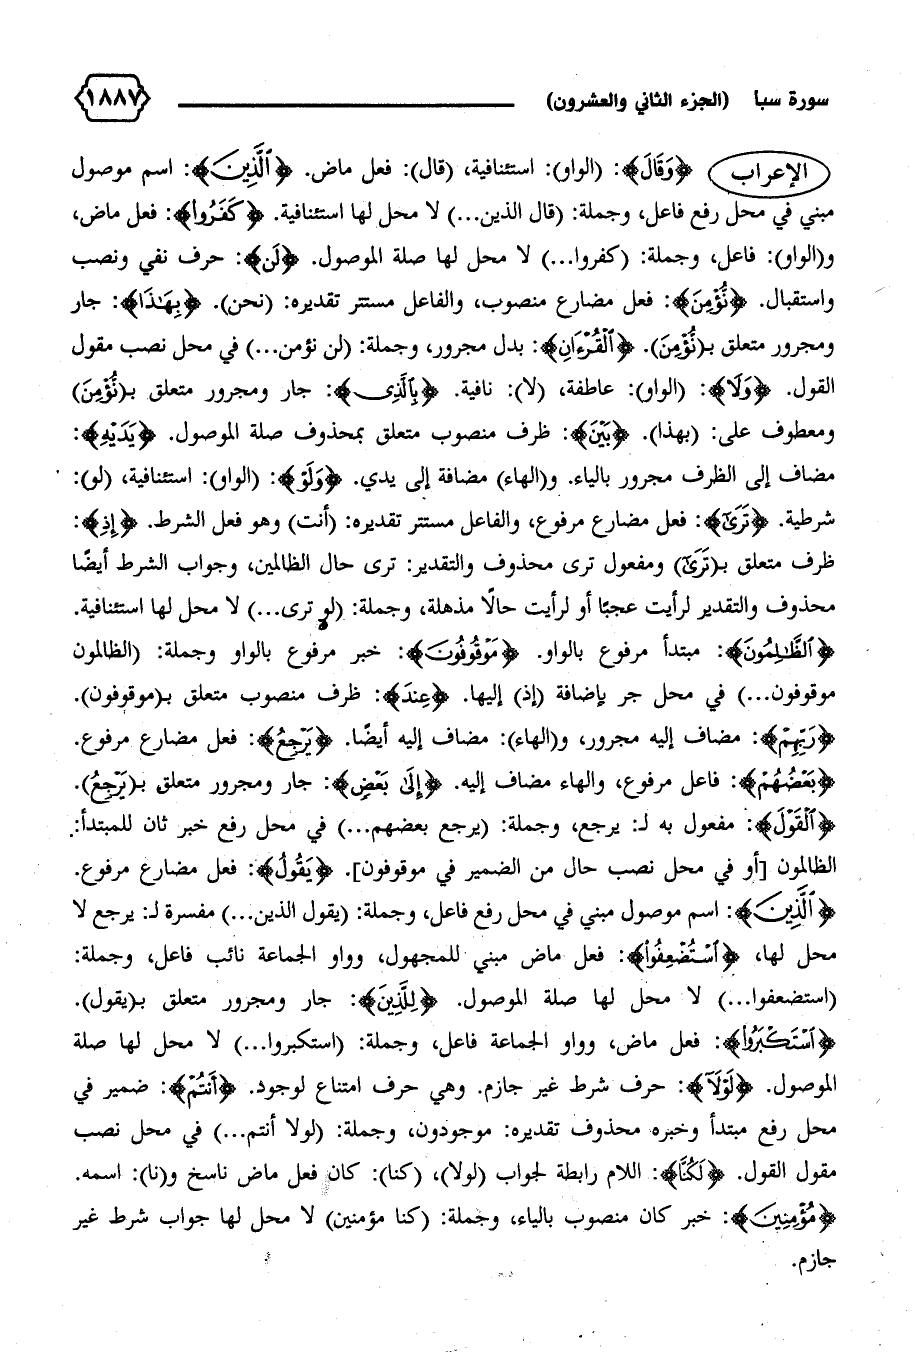 سورة سبأ (الجزء الثاني والعشرون) ١٨٨٧
الإعراب ﴿وَقَالَ﴾: (الواو): استئنافية، (قال): فعل ماض. ﴿الَّذِينَ﴾: اسم موصول
مبني في محل رفع فاعل، وجملة: (قال الذين...) لا محل لها استئنافية. ﴿كَفَرُوا﴾: فعل ماض،
و(الواو): فاعل، وجملة: (كفروا...) لا محل لها صلة الموصول. ﴿لَن﴾: حرف نفي ونصب
واستقبال. ﴿نُّؤْمِنَ﴾: فعل مضارع منصوب، والفاعل مستتر تقديره: (نحن). ﴿بِهَٰذَا﴾: جار
ومجرور متعلق بـ(نُّؤْمِنَ). ﴿الْقُرْءَانِ﴾: بدل مجرور، وجملة: (لن نؤمن...) في محل نصب مقول
القول. ﴿وَلَا﴾: (الواو): عاطفة، (لا): نافية. ﴿بِالَّذِى﴾: جار ومجرور متعلق بـ(نُّؤْمِنَ)
ومعطوف على: (بهذا). ﴿بَيْنَ﴾: ظرف منصوب متعلق بمحذوف صلة الموصول. ﴿يَدَيْهِ﴾:
مضاف إلى الظرف مجرور بالياء. و(الهاء) مضافة إلى يدي. ﴿وَلَوْ﴾: (الواو): استئنافية، (لو):
شرطية. ﴿تَرَىٰٓ﴾: فعل مضارع مرفوع، والفاعل مستتر تقديره: (أنت) وهو فعل الشرط. ﴿إِذِ﴾:
ظرف متعلق بـ(تَرَىٰٓ) ومفعول ترى محذوف والتقدير: ترى حال الظالمين، وجواب الشرط أيضًا
محذوف والتقدير لرأيت عجبًا أو لرأيت حالًا مذهلة، وجملة: (لو ترى...) لا محل لها استئنافية.
﴿الظَّٰلِمُونَ﴾: مبتدأ مرفوع بالواو. ﴿مَوْقُوفُونَ﴾: خبر مرفوع بالواو وجملة: (الظالمون
موقوفون...) في محل جر بإضافة (إذ) إليها. ﴿عِندَ﴾: ظرف منصوب متعلق بـ(موقوفون).
﴿رَبِّهِمْ﴾: مضاف إليه مجرور، و(الهاء): مضاف إليه أيضًا. ﴿يَرْجِعُ﴾: فعل مضارع مرفوع.
﴿بَعْضُهُمْ﴾: فاعل مرفوع، والهاء مضاف إليه. ﴿إِلَىٰ بَعْضٍ﴾: جار ومجرور متعلق بـ(يَرْجِعُ).
﴿الْقَوْلَ﴾: مفعول به لـ: يرجع، وجملة: (يرجع بعضهم...) في محل رفع خبر ثان للمبتدأ:
الظالمون [أو في محل نصب حال من الضمير في موقوفون]. ﴿يَقُولُ﴾: فعل مضارع مرفوع.
﴿الَّذِينَ﴾: اسم موصول مبني في محل رفع فاعل، وجملة: (يقول الذين...) مفسرة لـ: يرجع لا
محل لها، ﴿اسْتُضْعِفُوا﴾: فعل ماض مبني للمجهول، وواو الجماعة نائب فاعل، وجملة:
(استضعفوا...) لا محل لها صلة الموصول. ﴿لِلَّذِينَ﴾: جار ومجرور متعلق بـ(يقول).
﴿اسْتَكْبَرُوا﴾: فعل ماض، وواو الجماعة فاعل، وجملة: (استكبروا...) لا محل لها صلة
الموصول. ﴿لَوْلَآ﴾: حرف شرط غير جازم. وهي حرف امتناع لوجود. ﴿أَنتُمْ﴾: ضمير في
محل رفع مبتدأ وخبره محذوف تقديره: موجودون، وجملة: (لولا أنتم...) في محل نصب
مقول القول. ﴿لَكُنَّا﴾: اللام رابطة لجواب (لولا)، (كنا): كان فعل ماض ناسخ و(نا): اسمه.
﴿مُؤْمِنِينَ﴾: خبر كان منصوب بالياء، وجملة: (كنا مؤمنين) لا محل لها جواب شرط غير
جازم.